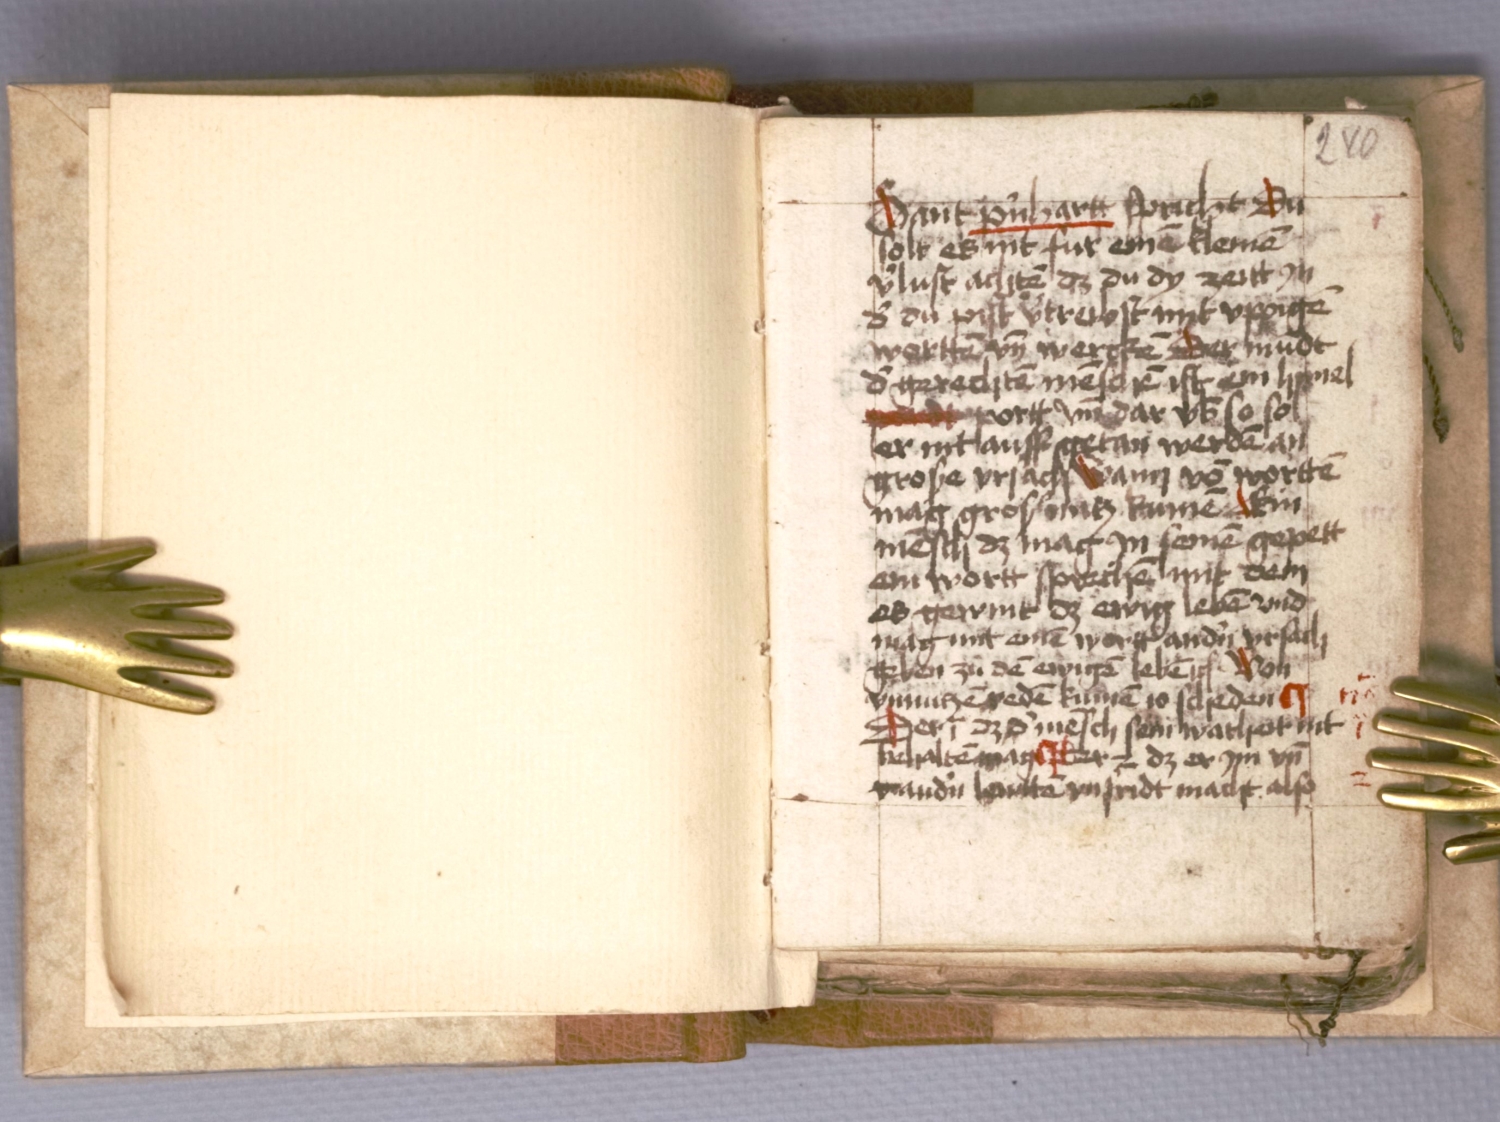 280
Sant pn̄hartt spricht Du
solt es nit fur einē kleinē
v̓lust achtē dz du dy zeitt jn
d̓ du pist v̓treibst mit vppigē
worttē vn̄ werckē Der mūdt
d̓ gerechtē mēschē ist ein himel
portt vn̄ dar vb̄ so sol
er nit auff getan werdē an
grose vrsach Wann vō worttē
mag groß nutz kumē Ein
mēsch dz mag jn seinē gepett
ein wortt sprechē mit dem
es gewint dz ewig lebē vnd
mag mit einē wortt andn̄ vrsach
geben zu dē ewigē lebē Von
vnnutzē redē kumē 10 scheden ¶
Der j̄ dz d̓ mēsch sein warheit nit
behaltē mag ¶ Der 2 dz er jm vn̄
andn̄ lewttē vnfridt macht also